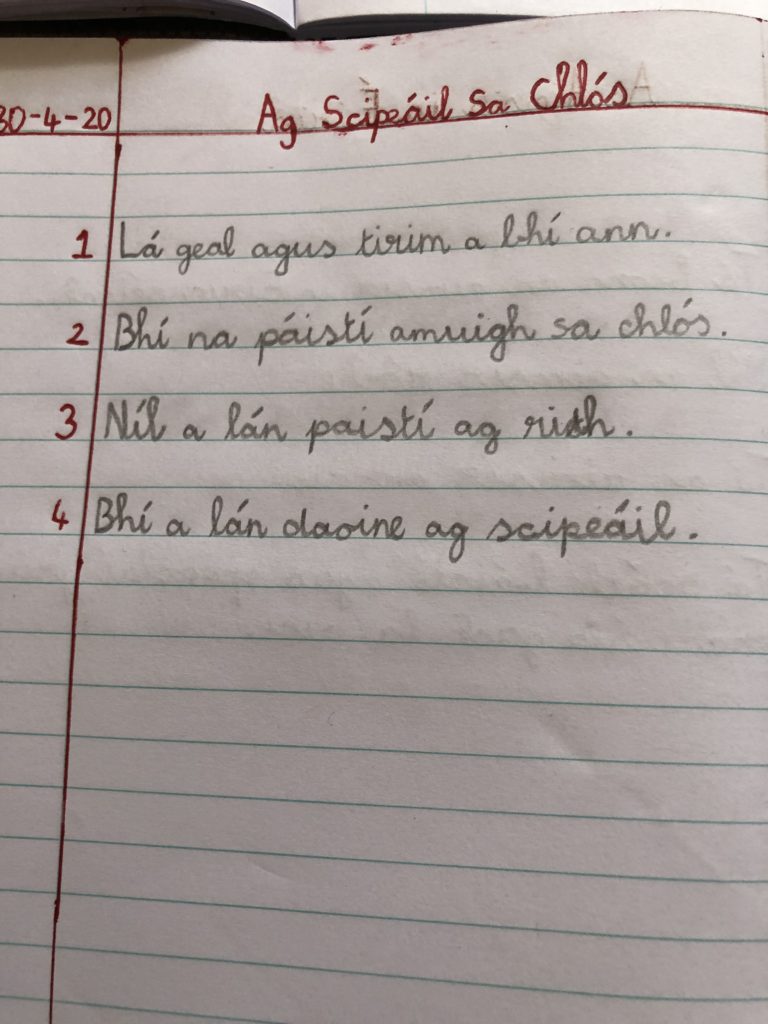 30-4-20 Ag Scipeáil Sa Chlós
1 Lá geal agus tirim a bhí ann.
2 Bhí na páistí amuigh sa chlós.
3 Níl a lán paistí ag rith.
4 Bhí a lán daoine ag scipeáil.